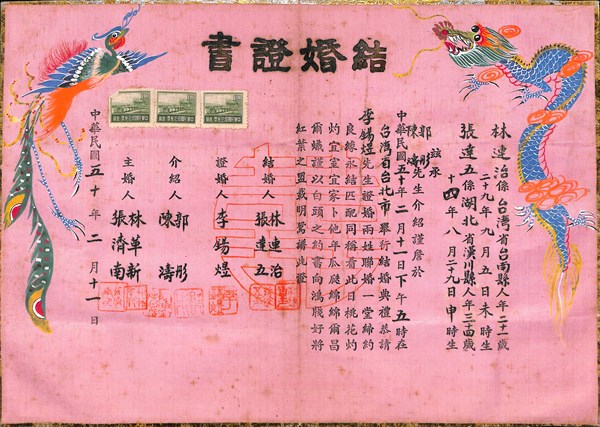 結婚證書
林連治係台灣省台南縣人年二十一歲
二十九年九月五日未時生
張達五係湖北省漢川縣人年三十四歲
十四年八月二十九日申時生
茲承
郭彤
陳濤先生介紹謹詹於
中華民國五十年二月十一日下午五時在
台灣省台北市舉行結婚典禮恭請
李錫煜先生證婚兩姓聯婚一堂締約
良緣永結匹配同稱看此日桃花灼
灼宜室宜家卜他年瓜瓞綿綿爾昌
爾熾謹以白頭之約書向鴻牋好將
紅葉之盟載明鴛譜此證
結婚人
林連治
張達五
證婚人
李錫煜
介紹人
郭彤
陳濤
主婚人
林革新
張濟南
中華民國五十年二月十一日